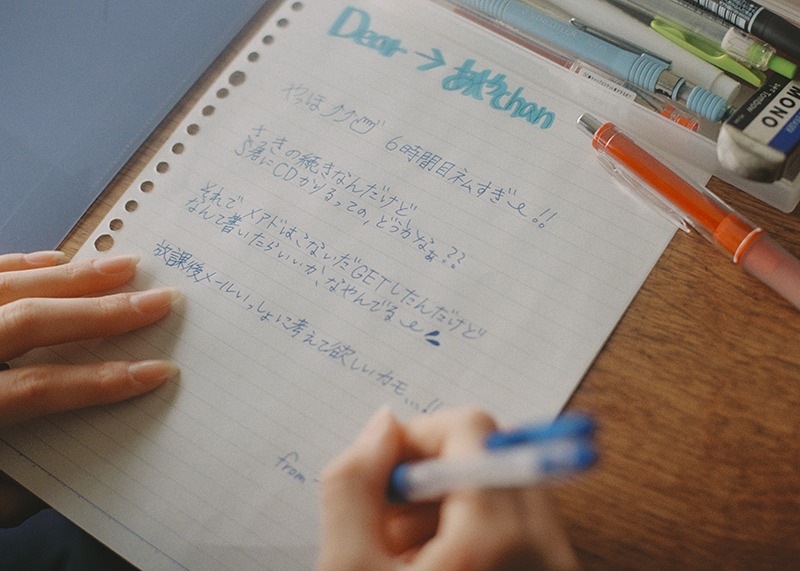 Dear→あやchan
やっほ
6時間目ネムすぎ!!
さっきの続きなんだけど
S君にCDかりるっての,どうかなぁ??
それでメアドはこないだGETしたんだけど
なんて書いたらいいか、なやんでる
放課後メールいっしょに考えて欲しいカモ...!!
from
MONO
Tombow